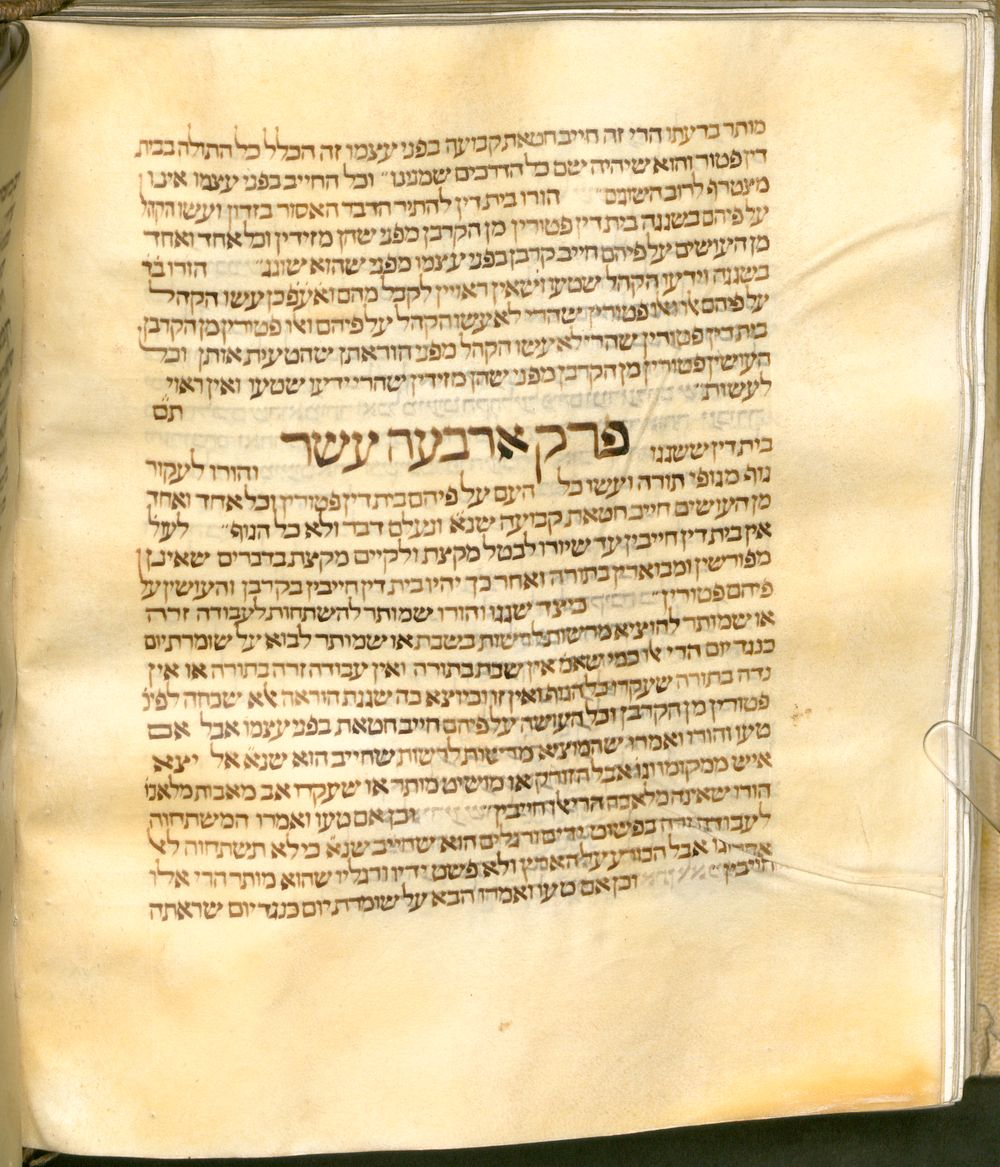 מותר בדעתו הרי זה חייב חטאת קבועה בפני עצמו זה הכלל כל התולה בבית
דין פטור והוא שיהיה שם כל הדרכים שמנינו״ וכל החייב בפני עצמו אינו
מצטרף לרוב השוגים״ הורו בית דין להתיר הדבר האסור בזדון ועשו הקהל
על פיהם בשגגה בית דין פטורין מן הקרבן מפני שהן מזידין וכל אחד ואחד
מן העושים על פיהם חייב קרבן בפני עצמו מפני שהוא שוגג״ הורו בד
בשגגה וידעו הקהל שטעו ושאין ראויין לקבל מהם ואעפ כן עשו הקהל
על פיהם אלו ואלו פטורין שהרי לא עשו הקהל על פיהם ואלו פטורין מן הקרבן
בית דין פטורין שהרי לא עשו הקהל מפני הוראתן שהטעית אותן וכל
העושין פטורין מן הקרבן מפני שהן מזידין שהרי ידעו שטעו ואין ראוי
לעשות״ תם
פרק ארבעה עשר
בית דין ששגגו והורו לעקור
גוף מגופי תורה ועשו כל העם על פיהם בית דין פטורין וכל אחד ואחד
מן העושים חייב חטאת קבועה שנ״א ונעלם דבר ולא כל הגוף״ לעול
אין בית דין חייבין עד שיורו לבטל מקצת ולקיים מקצת בדברים שאינן
מפורשין ומבוארין בתורה ואחר כך יהיו בית דין חייבין בקרבן והעושין על
פיהם פטורין״ כיצד שגגו והורו שמותר להשתחות לעבודה זרה
או שמותר להוציא מרשות לרשות בשבת או שמותר לבוא על שומרת יום
כנגד יום הרי אלו כמי שאמ׳ אין שבת בתורה ואין עבודה זרה בתורה או אין
נדה בתורה שעקרו כל הגוף ואין זו וכיוצא בה שגגת הוראה אלא שכחה לפיכ׳
פטורין מן הקרבן וכל העושה על פיהם חייב חטאת בפני עצמו אבל אם
טעו והורו ואמרו שהמוציא מרשות לרשות שחייב הוא שנ״א אל יצא
איש ממקומו וגו׳ אבל הזורק או מושיט מותר או שעקרו אב מאבות מלאכו׳
הורו שאינה מלאכה הרי אלו חייבין״ וכן אם טעו ואמרו המשתחוה
לעבודה זרה בפישוט ידים ורגלים הוא שחייב שנ״א כי לא תשתחוה לאל
אחר וגו׳ אבל הכורע על הארץ ולא פשט ידיו ורגליו שהוא מותר הרי אלו
חייבין״ וכן אם טעו ואמרו הבא על שומרת יום כנגד יום שראתה